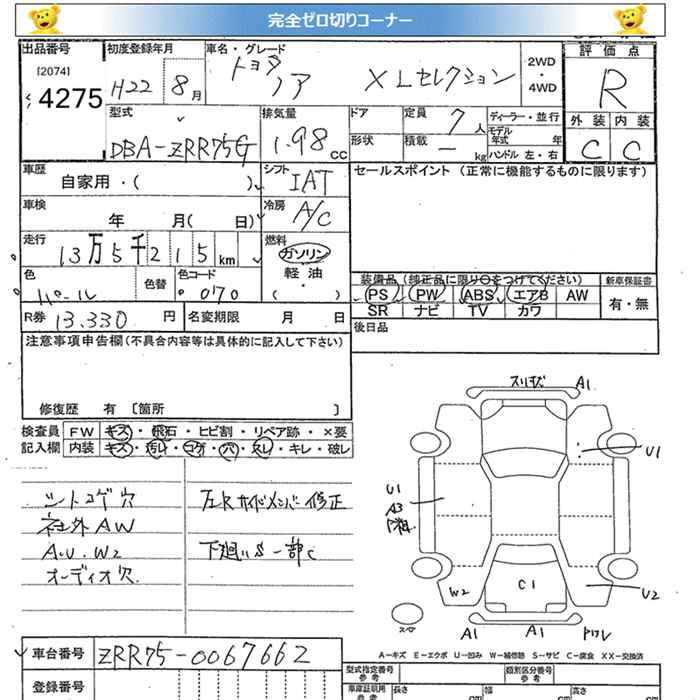 完全ゼロ切りコーナー
出品番号
[2074]
4275
初度登録年月
H22 8月
車名・グレード
トヨタ
ノア XLセレクション
2WD
・
4WD
評価点
R
外装 内装
C C
型式
DBA-ZRR75G
排気量
1.98 cc
ドア
形状
定員 7人
積載 — kg
ディーラー・並行
モデル年式 年
ハンドル 左・右
車歴
自家用・( )
シフト
IAT
セールスポイント (正常に機能するものに限ります)
車検
年 月( 日)
冷房
A/C
走行
13万5千215km
燃料
ガソリン
軽油
( )
色
パール
色替
色コード
070
装備品 (純正品に限り○をつけてください)
新車保証書
PS PW ABS エアB AW
有・無
SR ナビ TV カワ
R券 13.330 円
名変期限 月 日
後日品
注意事項申告欄(不具合内容等は具体的に記入して下さい)
修復歴 有 [箇所 ]
検査員
記入欄
FW キズ・飛石・ヒビ割・リペア跡・×要
内装 キズ・汚レ・コゲ・穴・スレ・キレ・破レ
シートコゲ穴
社外AW
A.U.W2
オーディオ穴
左Rサイドメンバー修正
下廻りS一部C
A1
U1
U1
A3
W2
C1
U2
スペア
A1
A1
A—キズ E—エクボ U—凹み W—補修跡 S—サビ C—腐食 XX—交換済
車台番号 ZRR75-0067662
登録番号
型式指定番号
参考
類別区分番号
参考
車庫証明用
参考
長さ cm
幅 cm
高さ cm